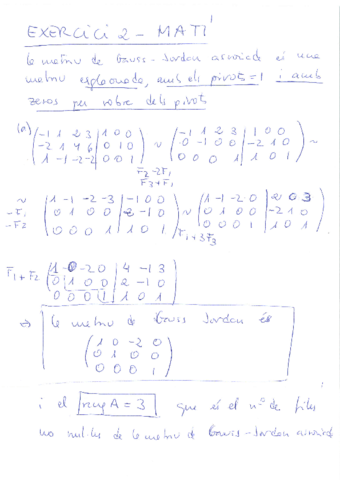 EXERCICI 2 - MATÍ
la matriu de Gauss-Jordan associada és una
matriu esglaonada, amb els pivots = 1 i amb
zeros per sobre dels pivots
(a) ( -1 1 2 3 | 1 0 0 ) ~ ( -1 1 2 3 | 1 0 0 ) ~
( -2 1 4 6 | 0 1 0 ) ( 0 -1 0 0 | -2 1 0 )
( 1 -1 -2 -2 | 0 0 1 ) ( 0 0 0 1 | 1 0 1 )
F2-2F1
F3+F1
~ ( 1 -1 -2 -3 | -1 0 0 ) ~ ( 1 -1 -2 0 | 2 0 3 )
-F1 ( 0 1 0 0 | 2 -1 0 ) ( 0 1 0 0 | -2 1 0 )
-F2 ( 0 0 0 1 | 1 0 1 ) ( 0 0 0 1 | 1 0 1 )
F1+3F3
F1+F2 ( 1 0 -2 0 | 4 -1 3 )
( 0 1 0 0 | 2 -1 0 )
( 0 0 0 1 | 1 0 1 )
⇒ la matriu de Gauss Jordan és
( 1 0 -2 0 )
( 0 1 0 0 )
( 0 0 0 1 )
i el rang A = 3 que és el nº de files
no nul·les de la matriu de Gauss-Jordan associada